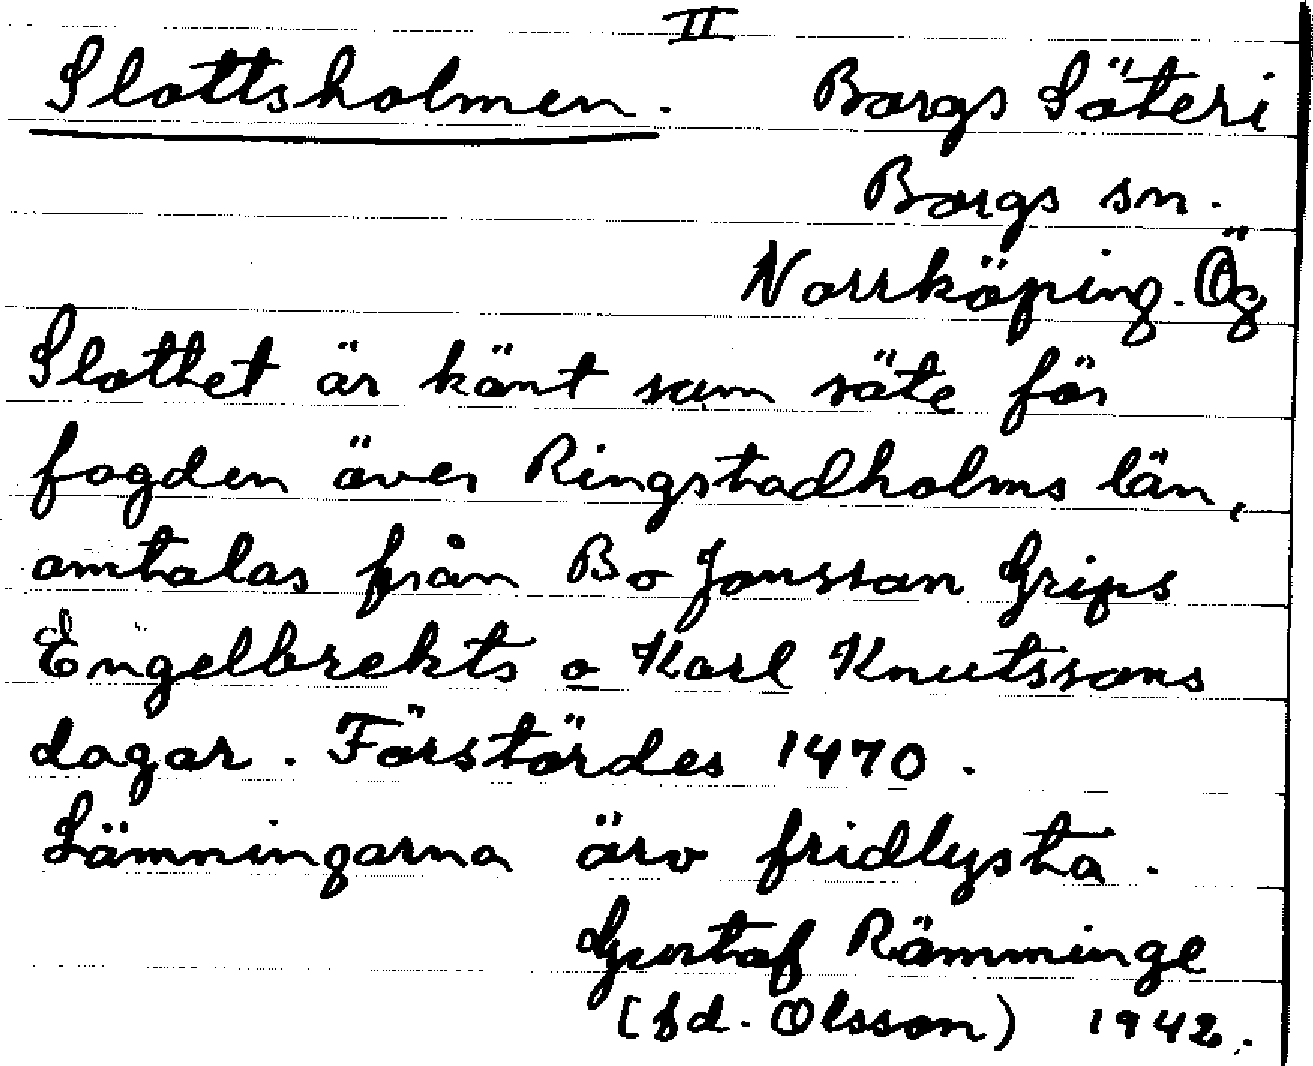 II
Slottsholmen. Borgs Säteri
Borgs sn.
Norrköping. Ög
Slottet är känt som säte för
fogden över Ringstadholms län,
omtalas från Bo Jonsson Grips
Engelbrekts o Karl Knutssons
dagar. Förstördes 1470.
Lämningarna äro fridlysta.
Gustaf Rämminge
(fd. Olsson) 1942.